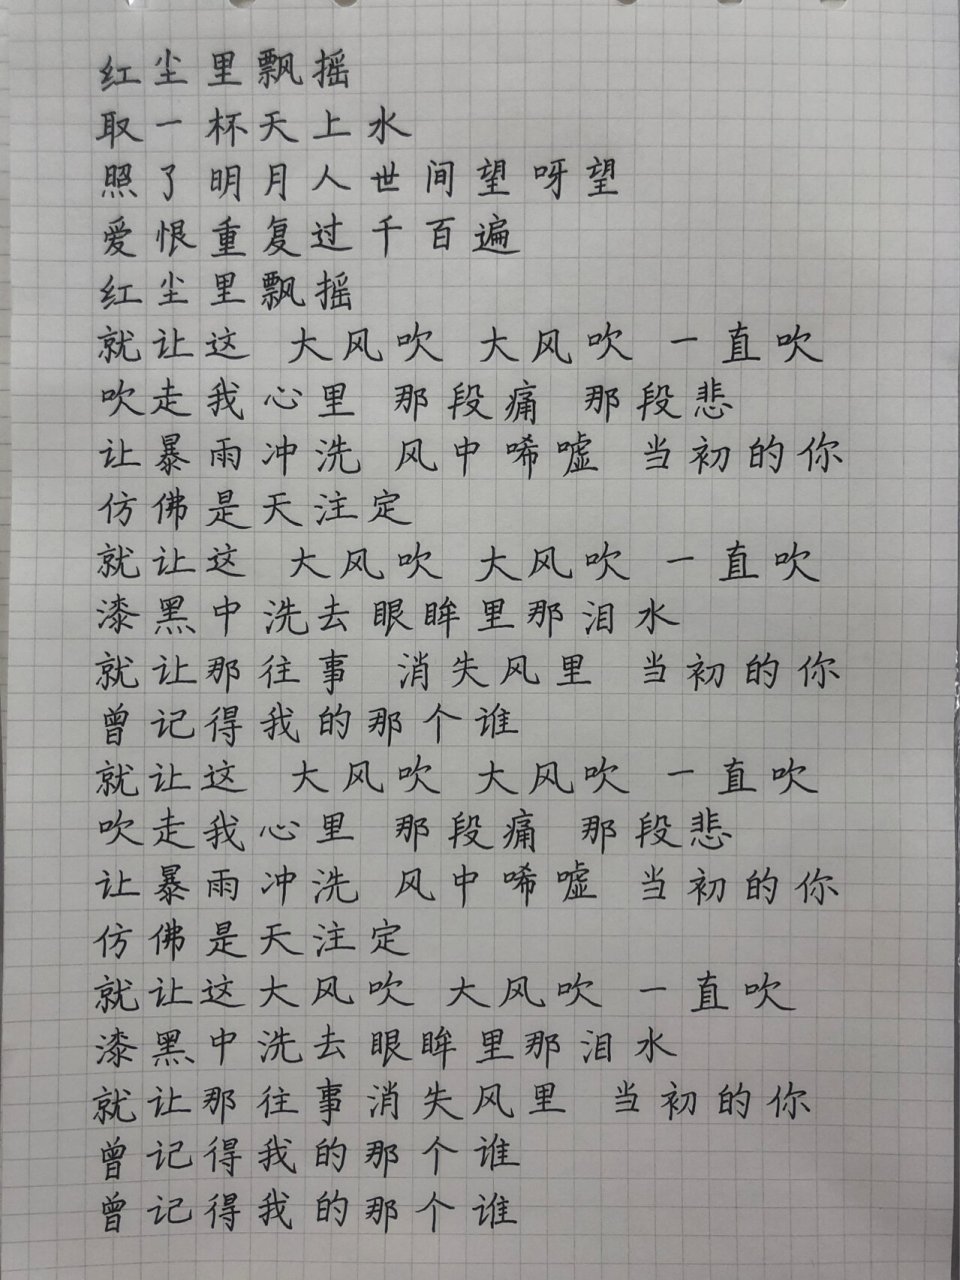 红尘里飘摇
取一杯天上水
照了明月人世间望呀望
爱恨重复过千百遍
红尘里飘摇
就让这 大风吹 大风吹 一直吹
吹走我心里 那段痛 那段悲
让暴雨冲洗 风中唏嘘 当初的你
仿佛是天注定
就让这 大风吹 大风吹 一直吹
漆黑中洗去眼眸里那泪水
就让那往事 消失风里 当初的你
曾记得我的那个谁
就让这 大风吹 大风吹 一直吹
吹走我心里 那段痛 那段悲
让暴雨冲洗 风中唏嘘 当初的你
仿佛是天注定
就让这大风吹 大风吹 一直吹
漆黑中洗去眼眸里那泪水
就让那往事消失风里 当初的你
曾记得我的那个谁
曾记得我的那个谁